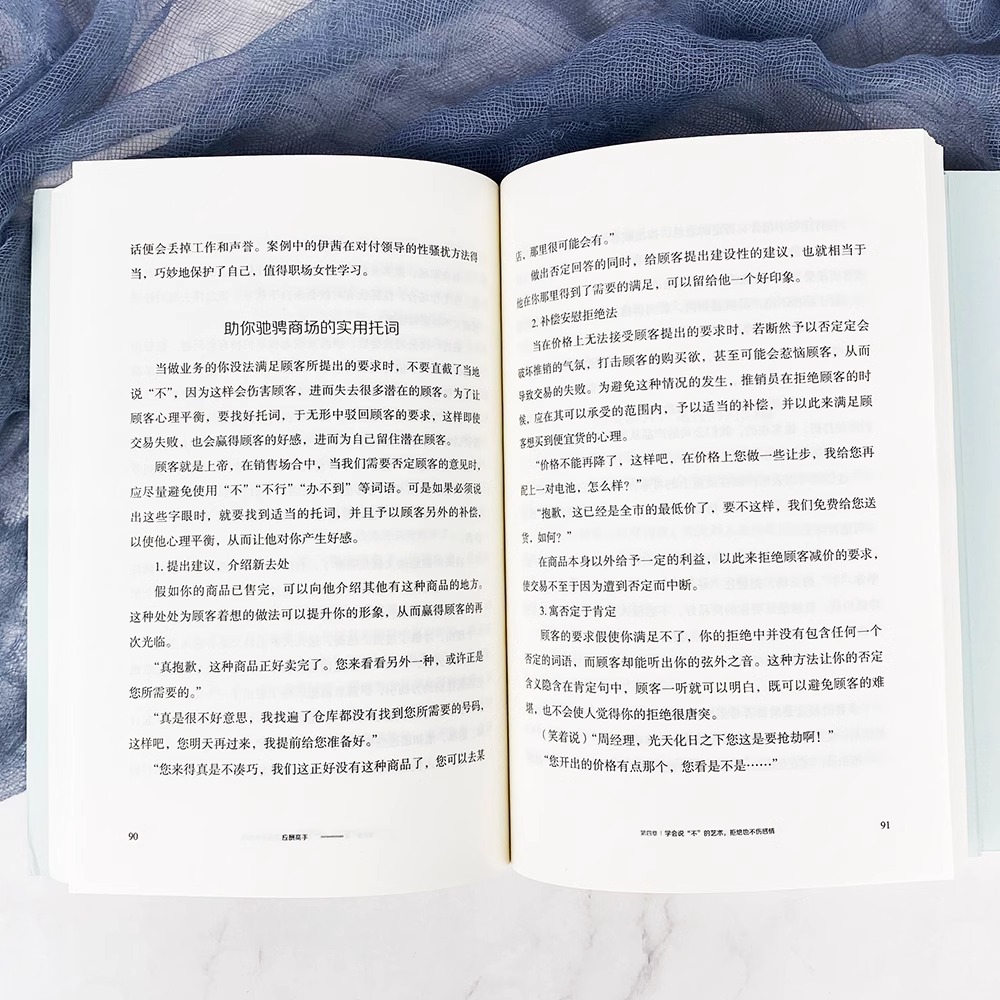 话便会丢掉工作和声誉。案例中的伊茜在对付领导的性骚扰方法得
当，巧妙地保护了自己，值得职场女性学习。
助你驰骋商场的实用托词
当做业务的你没法满足顾客所提出的要求时，不要直截了当地
说“不”，因为这样会伤害顾客，进而失去很多潜在的顾客。为了让
顾客心理平衡，要找好托词，于无形中驳回顾客的要求，这样即使
交易失败，也会赢得顾客的好感，进而为自己留住潜在顾客。
顾客就是上帝，在销售场合中，当我们需要否定顾客的意见时，
应尽量避免使用“不”“不行”“办不到”等词语。可是如果必须说
出这些字眼时，就要找到适当的托词，并且予以顾客另外的补偿，
以使他心理平衡，从而让他对你产生好感。
1. 提出建议，介绍新去处
假如你的商品已售完，可以向他介绍其他有这种商品的地方。
这种处处为顾客着想的做法可以提升你的形象，从而赢得顾客的再
次光临。
“真抱歉，这种商品正好卖完了。您来看看另外一种，或许正是
您所需要的。”
“真是很不好意思，我找遍了仓库都没有找到您所需要的号码，
这样吧，您明天再过来，我提前给您准备好。”
“您来得真是不凑巧，我们这正好没有这种商品了，您可以去某
90
应酬高手
店，那里很可能会有。”
做出否定回答的同时，给顾客提出建设性的建议，也就相当于
他在你那里得到了需要的满足，可以留给他一个好印象。
2. 补偿安慰拒绝法
当在价格上无法接受顾客提出的要求时，若断然予以否定定会
破坏推销的气氛，打击顾客的购买欲，甚至可能会惹恼顾客，从而
导致交易的失败。为避免这种情况的发生，推销员在拒绝顾客的时
候，应在其可以承受的范围内，予以适当的补偿，并以此来满足顾
客想买到便宜货的心理。
“价格不能再降了，这样吧，在价格上您做一些让步，我给您再
配上一对电池，怎么样？”
“抱歉，这已经是全市的最低价了，要不这样，我们免费给您送
货，如何？”
在商品本身以外给予一定的利益，以此来拒绝顾客减价的要求，
使交易不至于因为遭到否定而中断。
3. 寓否定于肯定
顾客的要求假使你满足不了，你的拒绝中并没有包含任何一个
否定的词语，而顾客却能听出你的弦外之音。这种方法让你的否定
含义隐含在肯定句中，顾客一听就可以明白，既可以避免顾客的难
堪，也不会使人觉得你的拒绝很唐突。
（笑着说）“周经理，光天化日之下您这是要抢劫啊！”
“您开出的价格有点那个，您看是不是……”
第四章 | 学会说“不”的艺术，拒绝也不伤感情
91